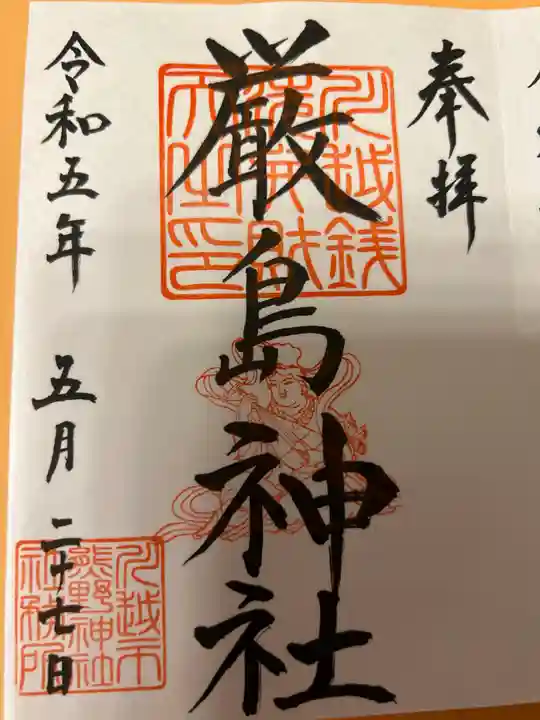 奉拝
川越銭
厳島神社
令和五年 五月 二十七日
川越市
熊野神社
社務所